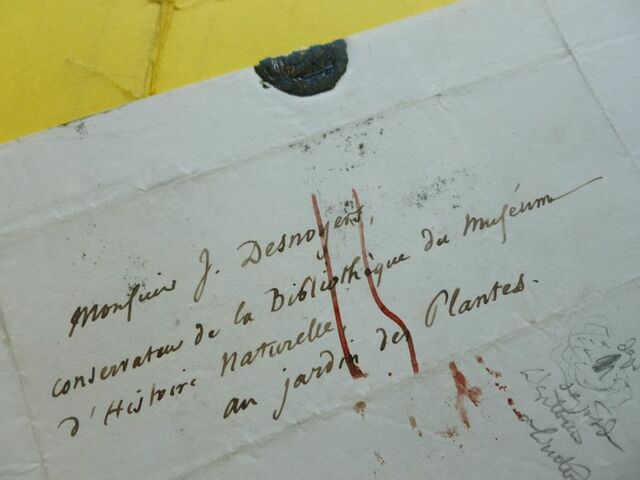 Monsieur J. Desnoyers,
conservateur de la Bibliothèque du Muséum
d'Histoire Naturelle,
au jardin des Plantes.